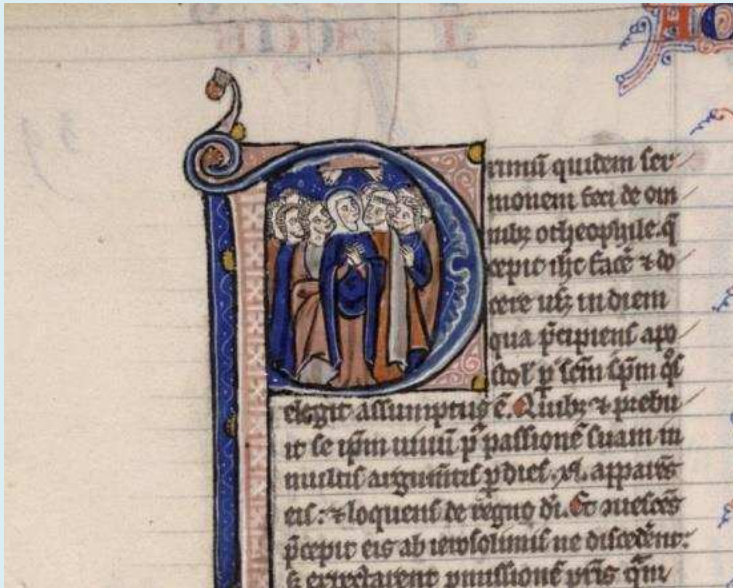 AC
Primū quidem ser
monem feci de om
nibꝫ o theophile. q̄
cepit ihc facē ⁊ do
cere usqꝫ in diem
qua p̄cipiens apo
stol' ꝑ sc̄m sp̄m q̊s
elegit assumptus ē. Quibꝫ ⁊ prebu
it se ip̄m uiuū p̄ passionē suam in
multis argumētis ꝑ dies .xl. apparēs
eis: ⁊ loquens de regno di. Et uescēs
p̄cepit eis ab ierosolimis ne discedēnt:
sꝫ expectarent ꝓmissionē pr̄is q̄m